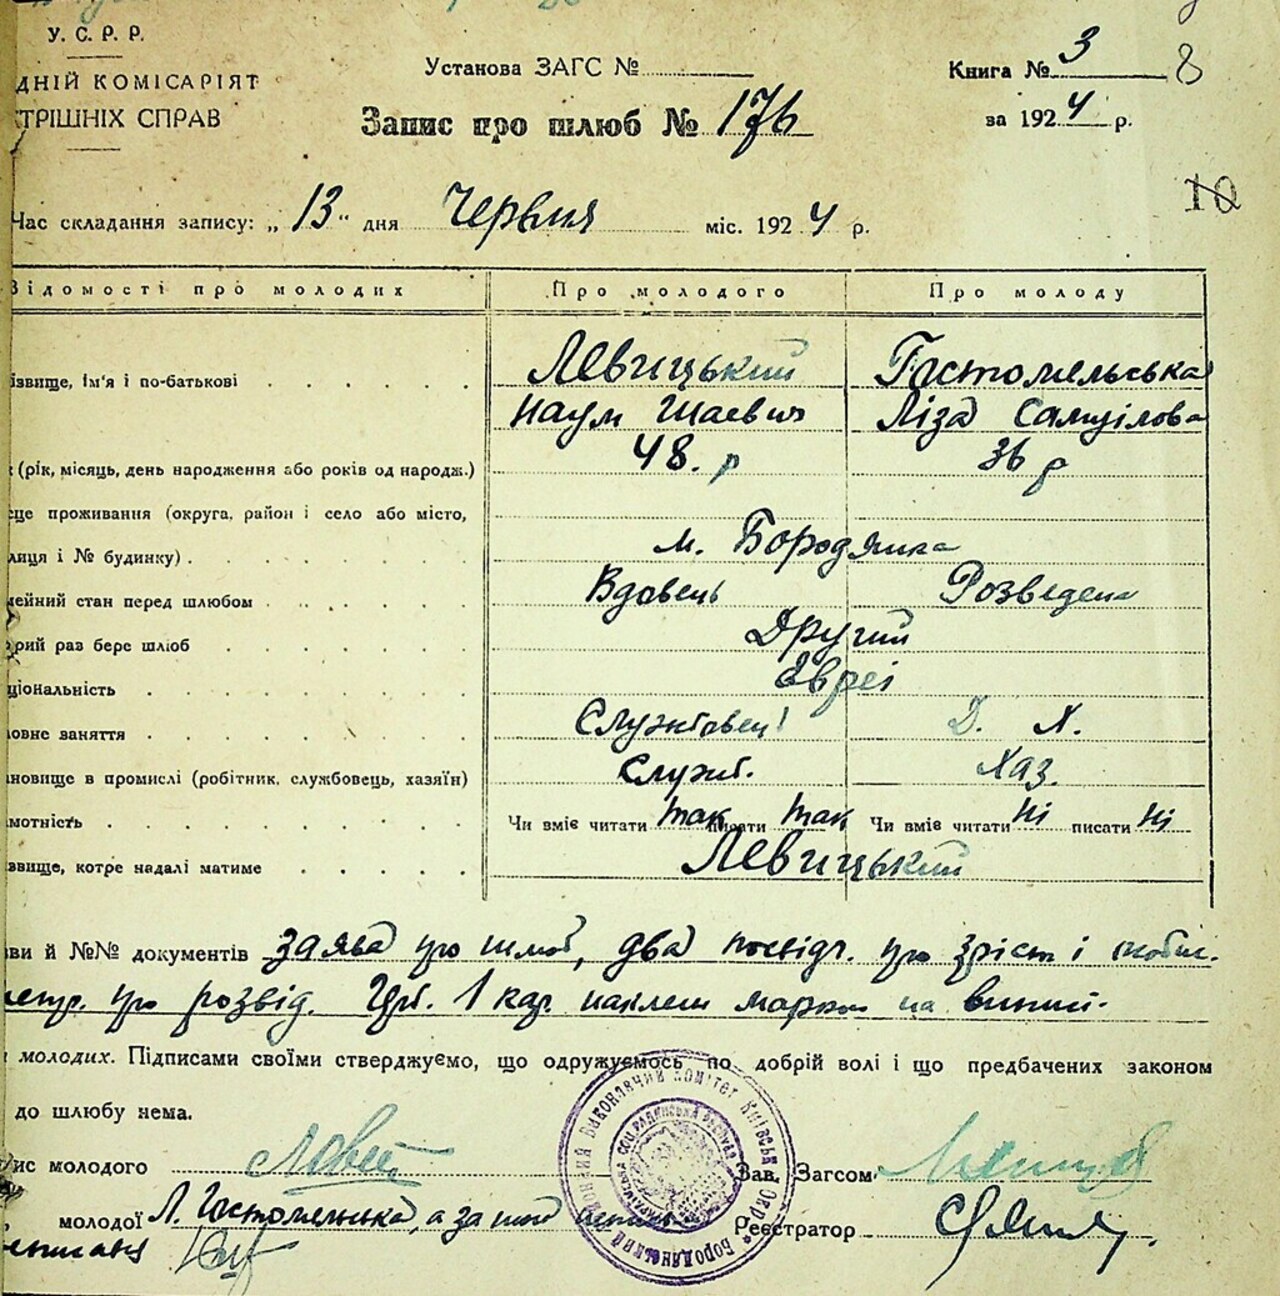 У. С. Р. Р.
ДНІЙ КОМІСАРІЯТ
ТРІШНІХ СПРАВ
Установа ЗАГС №
Книга № 3
8
Запис про шлюб № 176
за 1924 р.
10
Час складання запису: „13" дня Червня міс. 1924 р.
Відомості про молодих Про молодого Про молоду
ізвище, ім'я і по-батькові Левицький Гостомельська
Наум Шаевич Ліза Самуілова
(рік, місяць, день народження або років од народж.) 48. р 36 р
це проживання (округа, район і село або місто,
лиця і № будинку). м. Бородянка
мейний стан перед шлюбом Вдовець Розведена
рий раз бере шлюб Другий
ціональність Евреі
овне заняття Службовец Д. Х.
новище в промислі (робітник, службовець, хазяїн) Служб. Хаз.
мотність Чи вміє читати так писати так Чи вміє читати Ні писати Ні
звище, котре надалі матиме Левицький
ви й №№ документів заява про шлюб, два посвідч. про зріст і
про розвід. Грб. 1 кар. наклеш марки на
молодих. Підписами своїми стверджуємо, що одружуємось по добрій волі і що предбачених законом
до шлюбу нема.
ис молодого
Зав. Загсом
молодої Л. Гостомельська, а за
Реєстратор
БОРОДЯНСЬКИЙ РАЙОННИЙ ВИКОНАВЧИЙ КОМІТЕТ КИЇВСЬК. ОКР.
УКРАЇНСЬКА СОЦ. РАДЯНСЬКА РЕСПУБ.